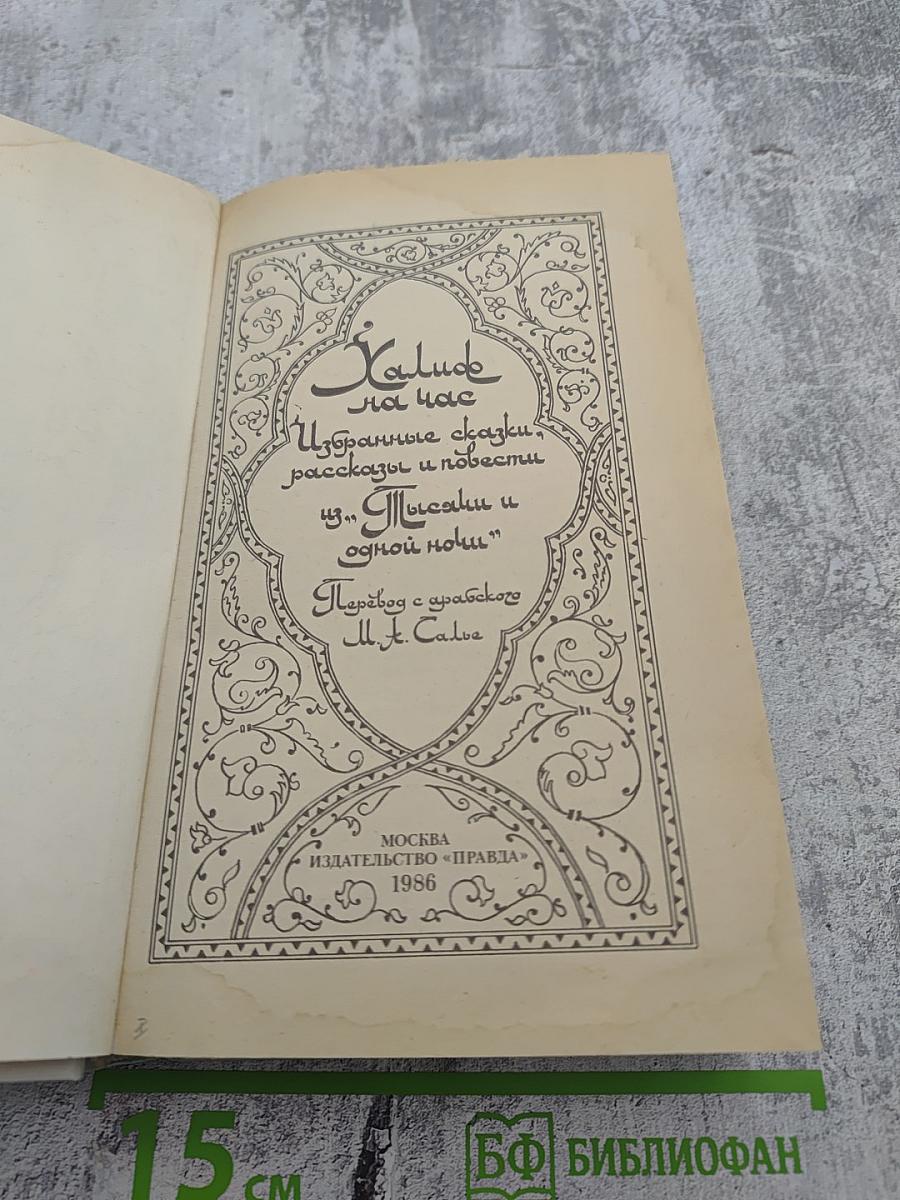 Халиф
на час
Избранные сказки,
рассказы и повести
из „Тысячи и
одной ночи"
Перевод с арабского
М. А. Салье
МОСКВА
ИЗДАТЕЛЬСТВО «ПРАВДА»
1986
15 СМ
БФ БИБЛИОФАН